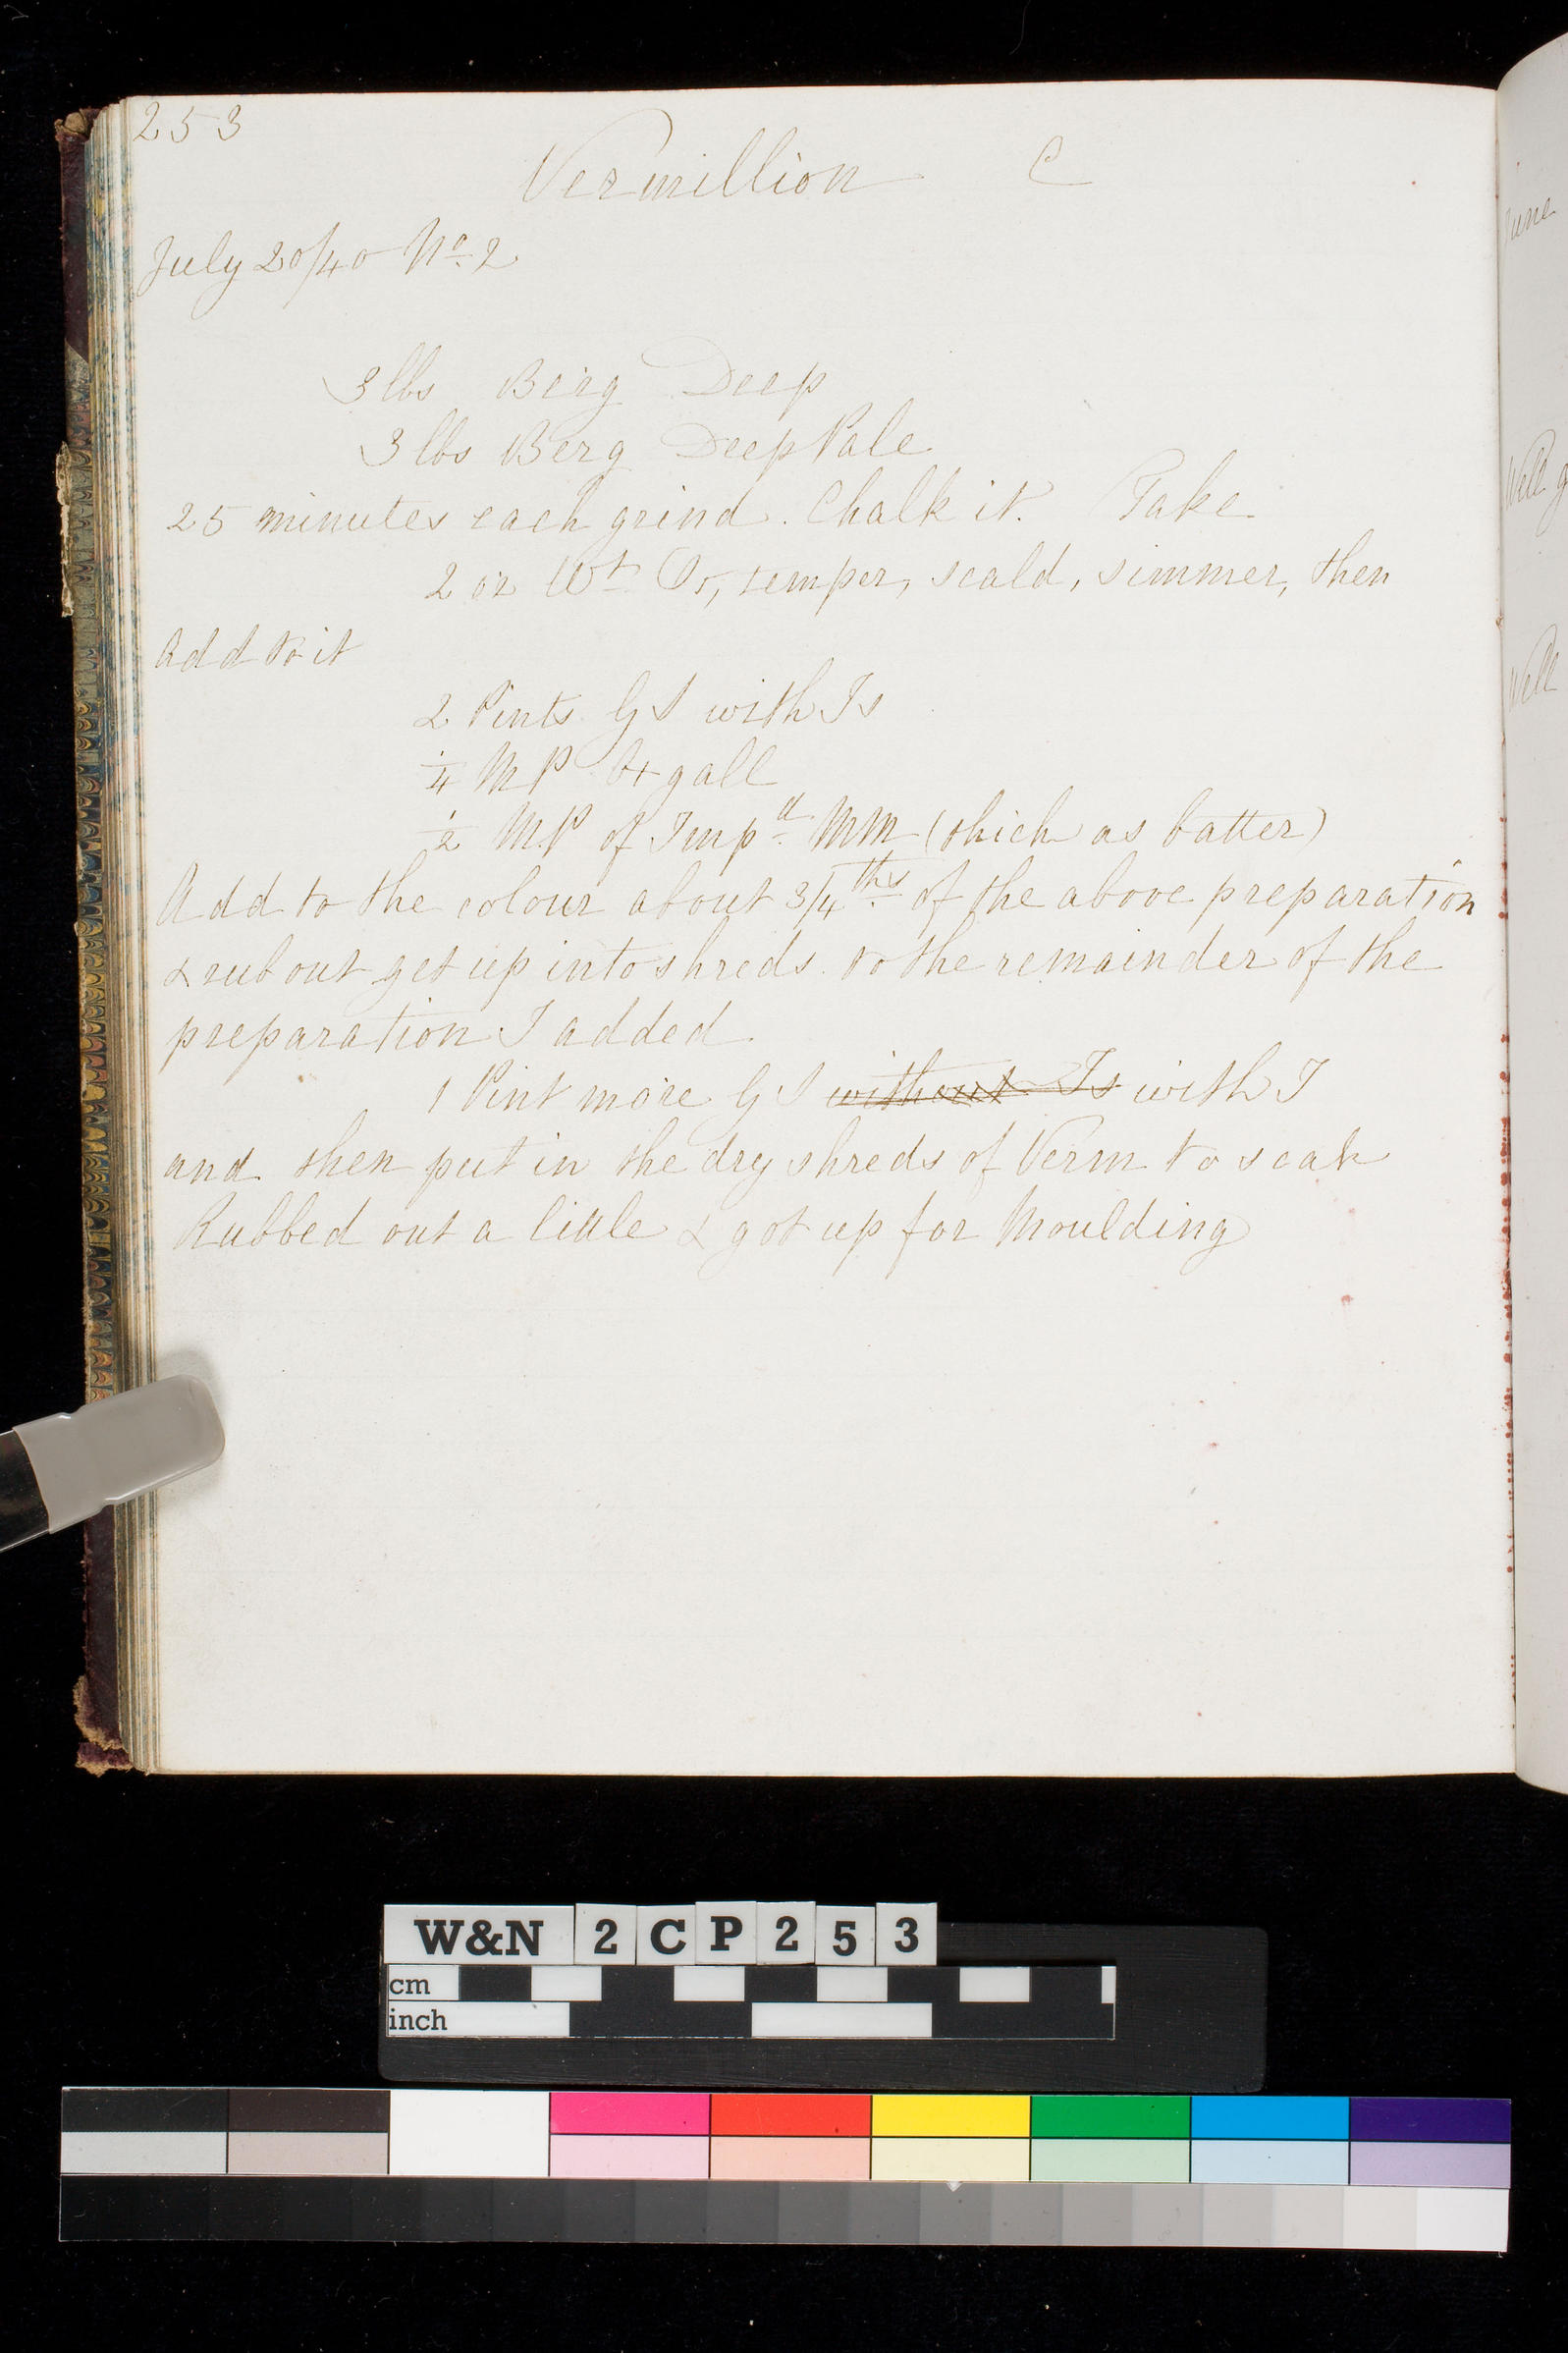 253
Vermillion C
July 20/40 No. 2
3 lbs Berg Deep
3 lbs Berg Deep Pale
25 minutes each grind. Chalk it. Take
2 oz Wt Or, temper, scald, simmer, then
Add to it
2 Pints G S with Is
1/4 M P Ox gall
1/2 M.P of Impd MM (thick as batter)
Add to the colour about 3/4ths of the above preparation
& rub out get up into shreds. to the remainder of the
preparation I added
1 Pint more G S without Is with I
and then put in the dry shreds of Verm to soak
Rubbed out a little & got up for Moulding
June
Well g
Well
W&N 2CP253
cm
inch